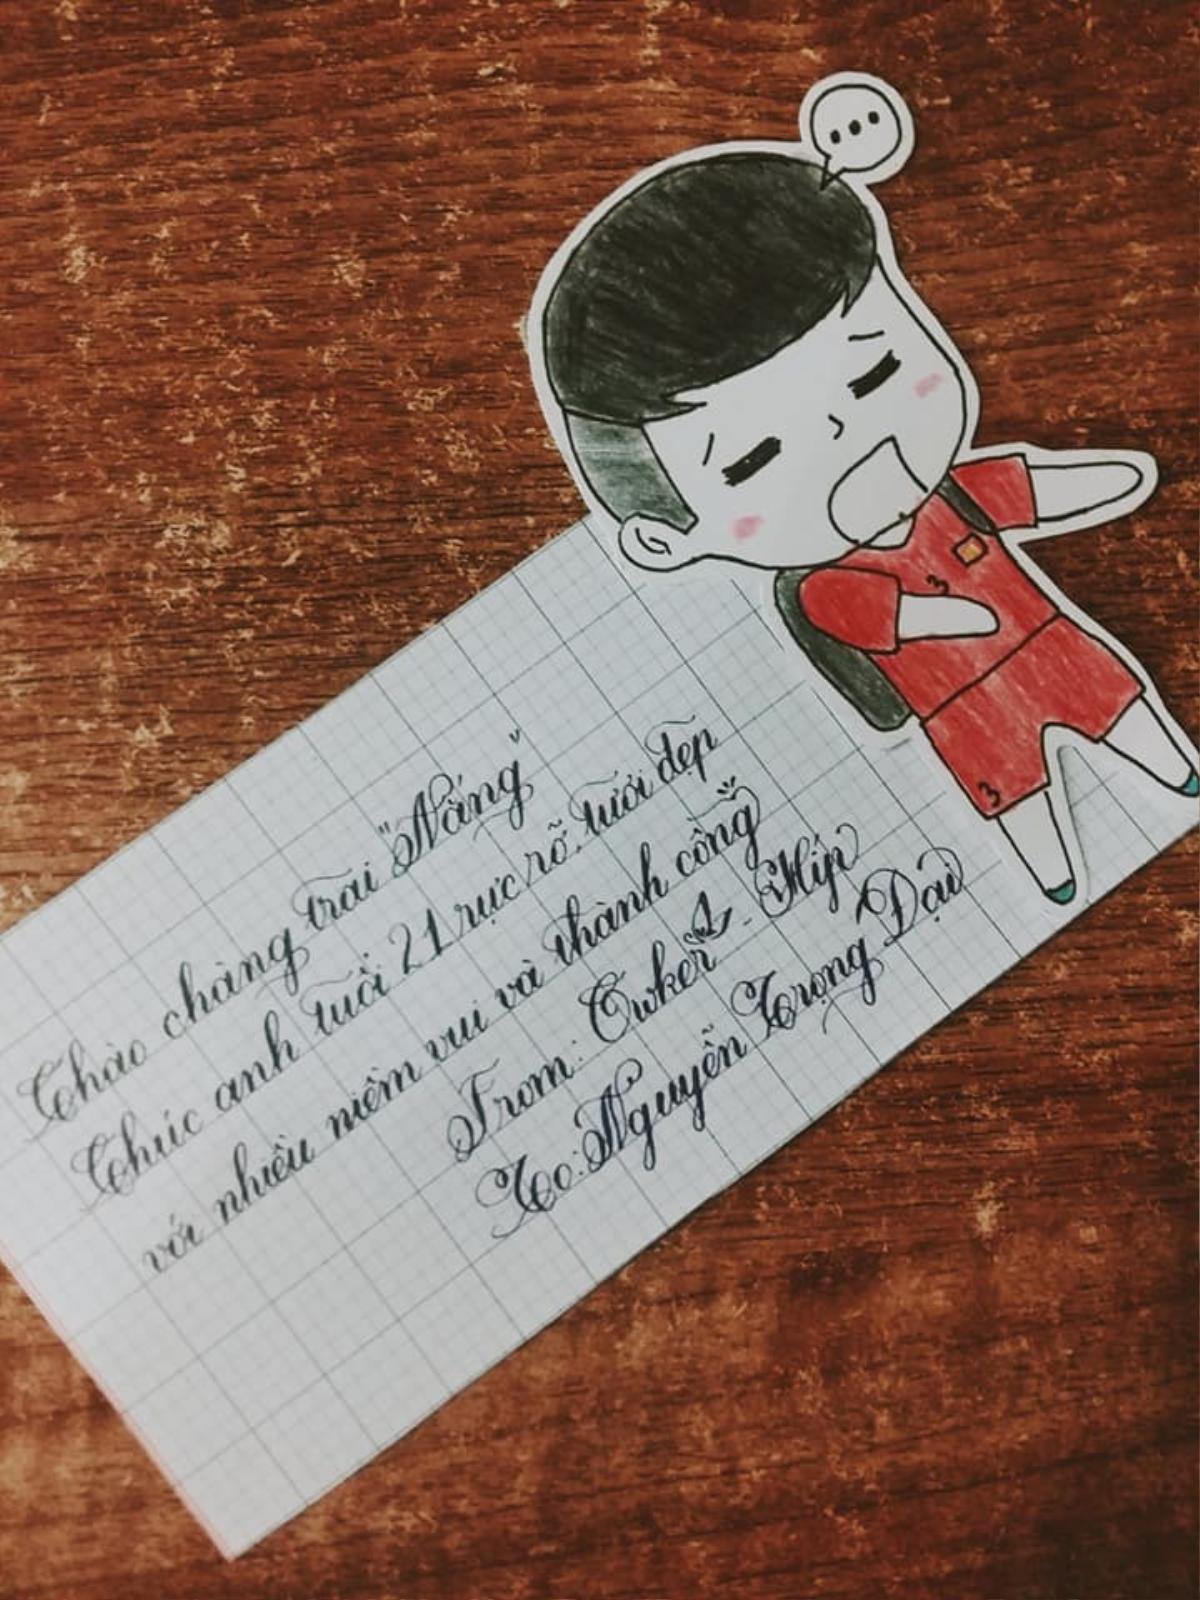 ...
3
3
Chào chàng trai "Nắng"
Chúc anh tuổi 21 rực rỡ, tươi đẹp
với nhiều niềm vui và thành công
From: Cwker - Míp
To: Nguyễn Trọng Đại